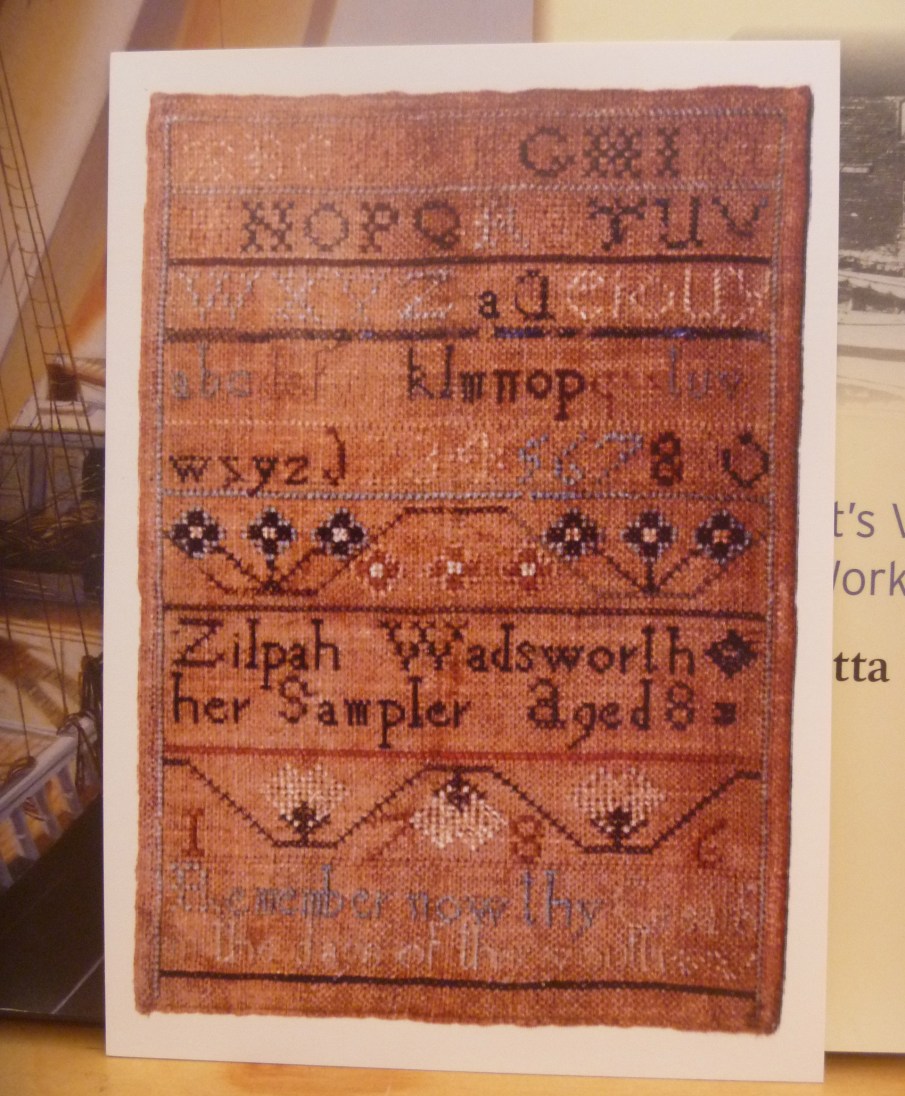 A B C G H I
N O P Q R T U V
W X Y Z a d
a b c d e f k l m n o p q s t u v
w x y z 3 4 5 6 7 8 0
Zilpah Wadsworth
her Sampler aged 8
1 7 8 6
Remember now thy
in the days of thy youth
t's V
Work
tta